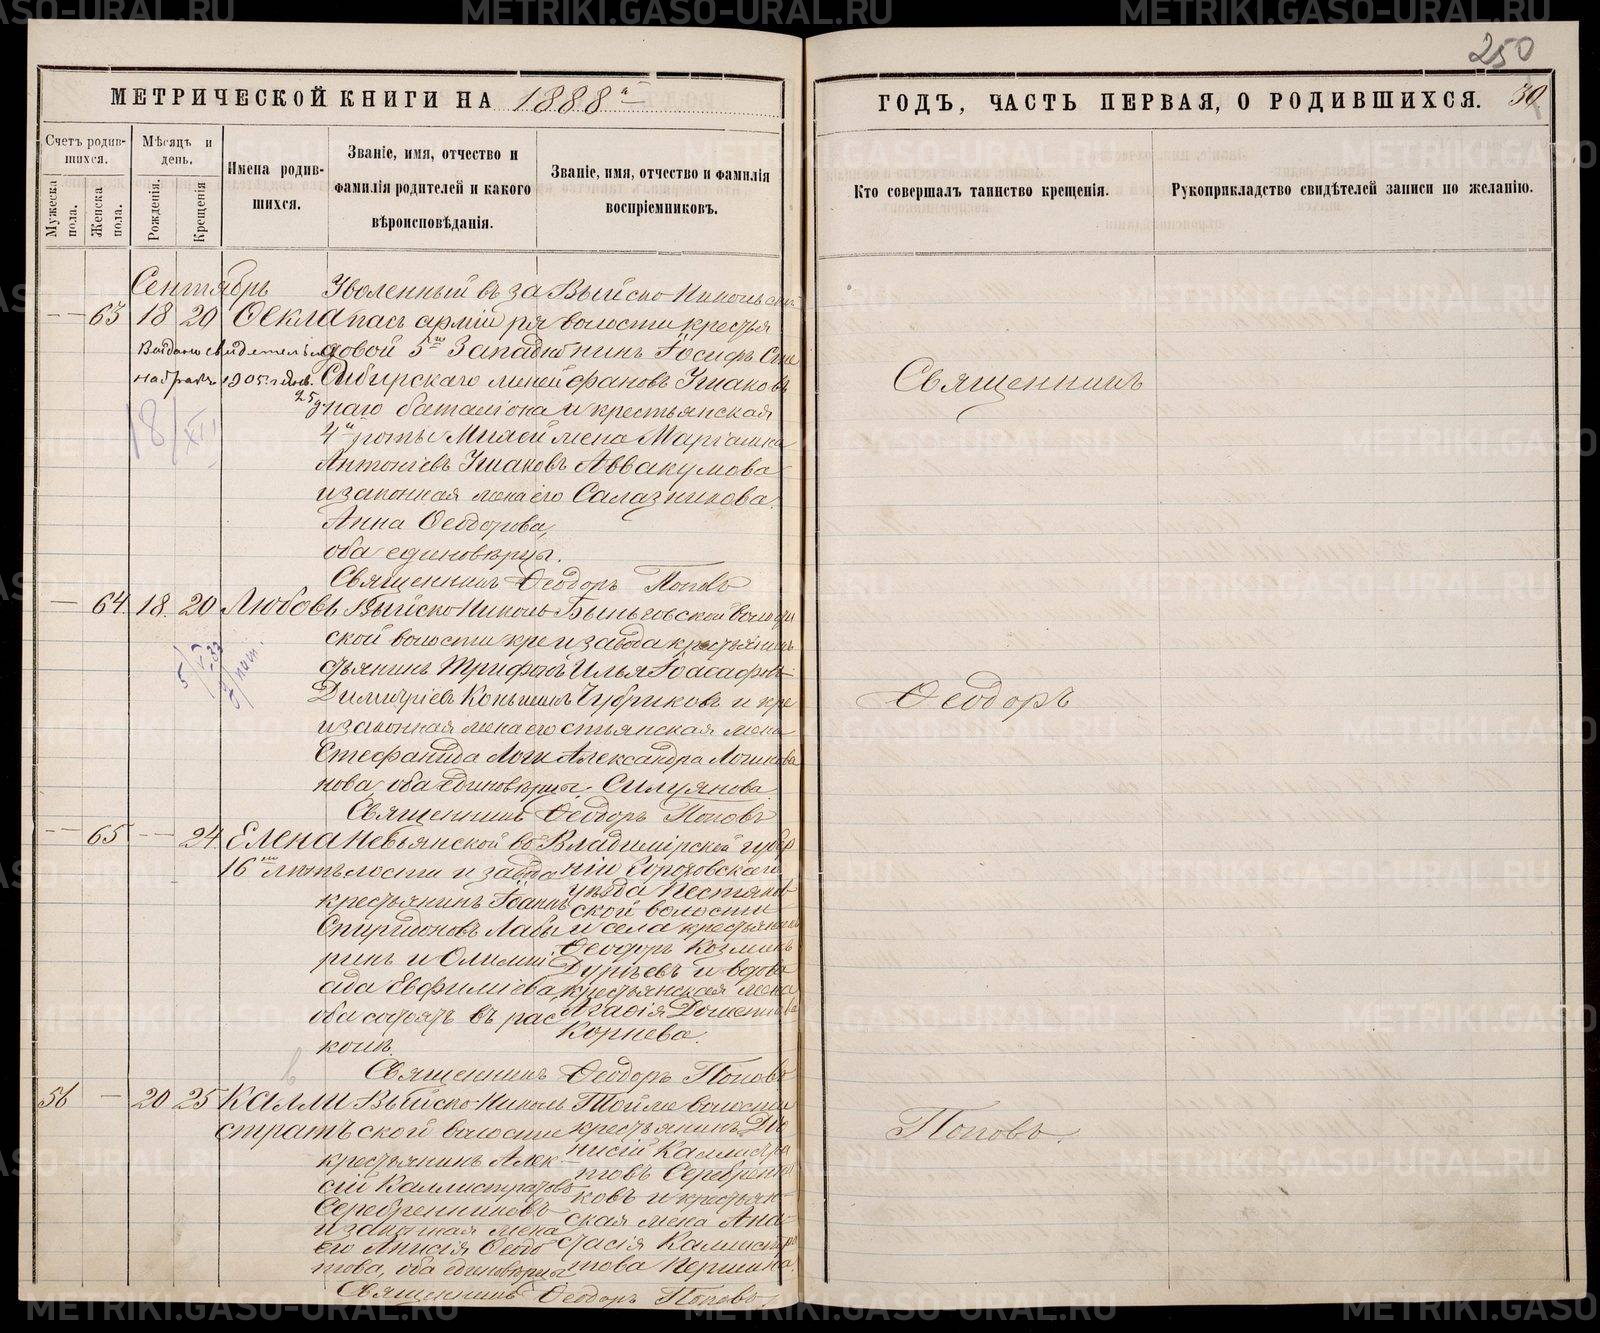 250
МЕТРИЧЕСКОЙ КНИГИ НА 1888й
ГОДЪ, ЧАСТЬ ПЕРВАЯ, О РОДИВШИХСЯ. 30
Счетъ родив-
шихся.
Мужеска пола.
Женска пола.
Мѣсяцъ и
день.
Рожденія.
Крещенія
Имена родив-
шихся.
Званіе, имя, отчество и
фамилія родителей и какого
вѣроисповѣданія.
Званіе, имя, отчество и фамилія
воспріемниковъ.
Кто совершалъ таинство крещенія.
Рукоприкладство свидѣтелей записи по желанію.
Сентябрь
63 18 20 Ѳекла
Выдано свидетельс
на бракъ 1905 г. Янв.
25 д.
18/XII
Уволенный въ за
пасъ арміи ря
довой 5го Западно
Сибирскаго линей
наго баталіона
4й роты
Антоніевъ Ушаковъ
и законная жена его
Анна Ѳеодорова,
оба единовѣрцы.
Выйско-Николь
волости крестья
нинъ Іосифъ Сте
фановъ Ушаковъ
и крестьянская
жена
Аввакумова
Салазникова.
Священникъ Ѳеодоръ Поповъ
64 18. 20 Любовь
Выйско-Николь
ской волости кре
стьянинъ Трифонъ
Димитріевъ Коньшинъ
и законная жена его
Стефанида Логи
нова, оба единовѣрцы.
Быньговской волости
и завода крестьянинъ
Илья Іоасафовъ
Чубриковъ и кре
стьянская жена
Александра Логинова
Силуянова
Священникъ Ѳеодоръ Поповъ
65 24 Елена
16ти лѣтъ
Невьянской во
лости и завода
крестьянинъ Іоаннъ
Спиридоновъ
и Олимпі
ада Евфиміева,
оба состоятъ въ рас
колѣ.
Владимірской губер
ніи Гороховскаго
уѣзда Пестяков
ской волости
и села крестьянинъ
Ѳеодоръ Козминъ
и вдова
крестьянская жена
Агафія
Корнева.
Священникъ Ѳеодоръ Поповъ
56 20 25 Калли
стратъ
Выйско-Николь
ской волости
крестьянинъ Алек
сій Каллистратовъ
Серебренниковъ
и законная жена
его Анисія Ѳеодо
това, оба единовѣрцы
Той же волости
крестьянинъ Діо
нисій Каллистра
товъ Серебренни
ковъ и крестьян
ская жена Ана
стасія Каллистра
това Першина.
Священникъ Ѳеодоръ Поповъ.
Священникъ
Ѳеодоръ
Поповъ.
METRIKI.GASO-URAL.RU